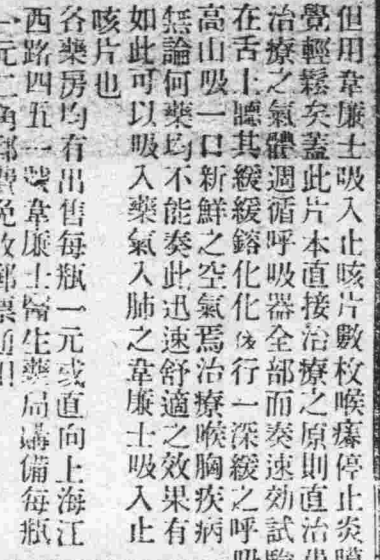 但用韋廉士吸入止咳片數枚喉癢停止炎膜
覺輕鬆矣蓋此片本直接治療之原則直治
治療之氣體週循呼吸器全部而奏速効試
在舌上聽其緩緩鎔化化後行一深緩之呼吸
高山吸一口新鮮之空氣焉治療喉胸疾病
無論何藥均不能奏此迅速舒適之效果有
如此可以吸入藥氣入肺之韋廉士吸入止
咳片也
各藥房均有出售每瓶一元或直向上海江
西路四五一號韋廉士醫生藥局購備每瓶
一元二角郵費免收郵票通用